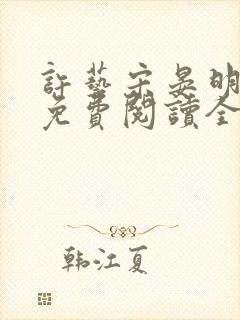 許藝宋晏明
免費閱讀全
韩江夏